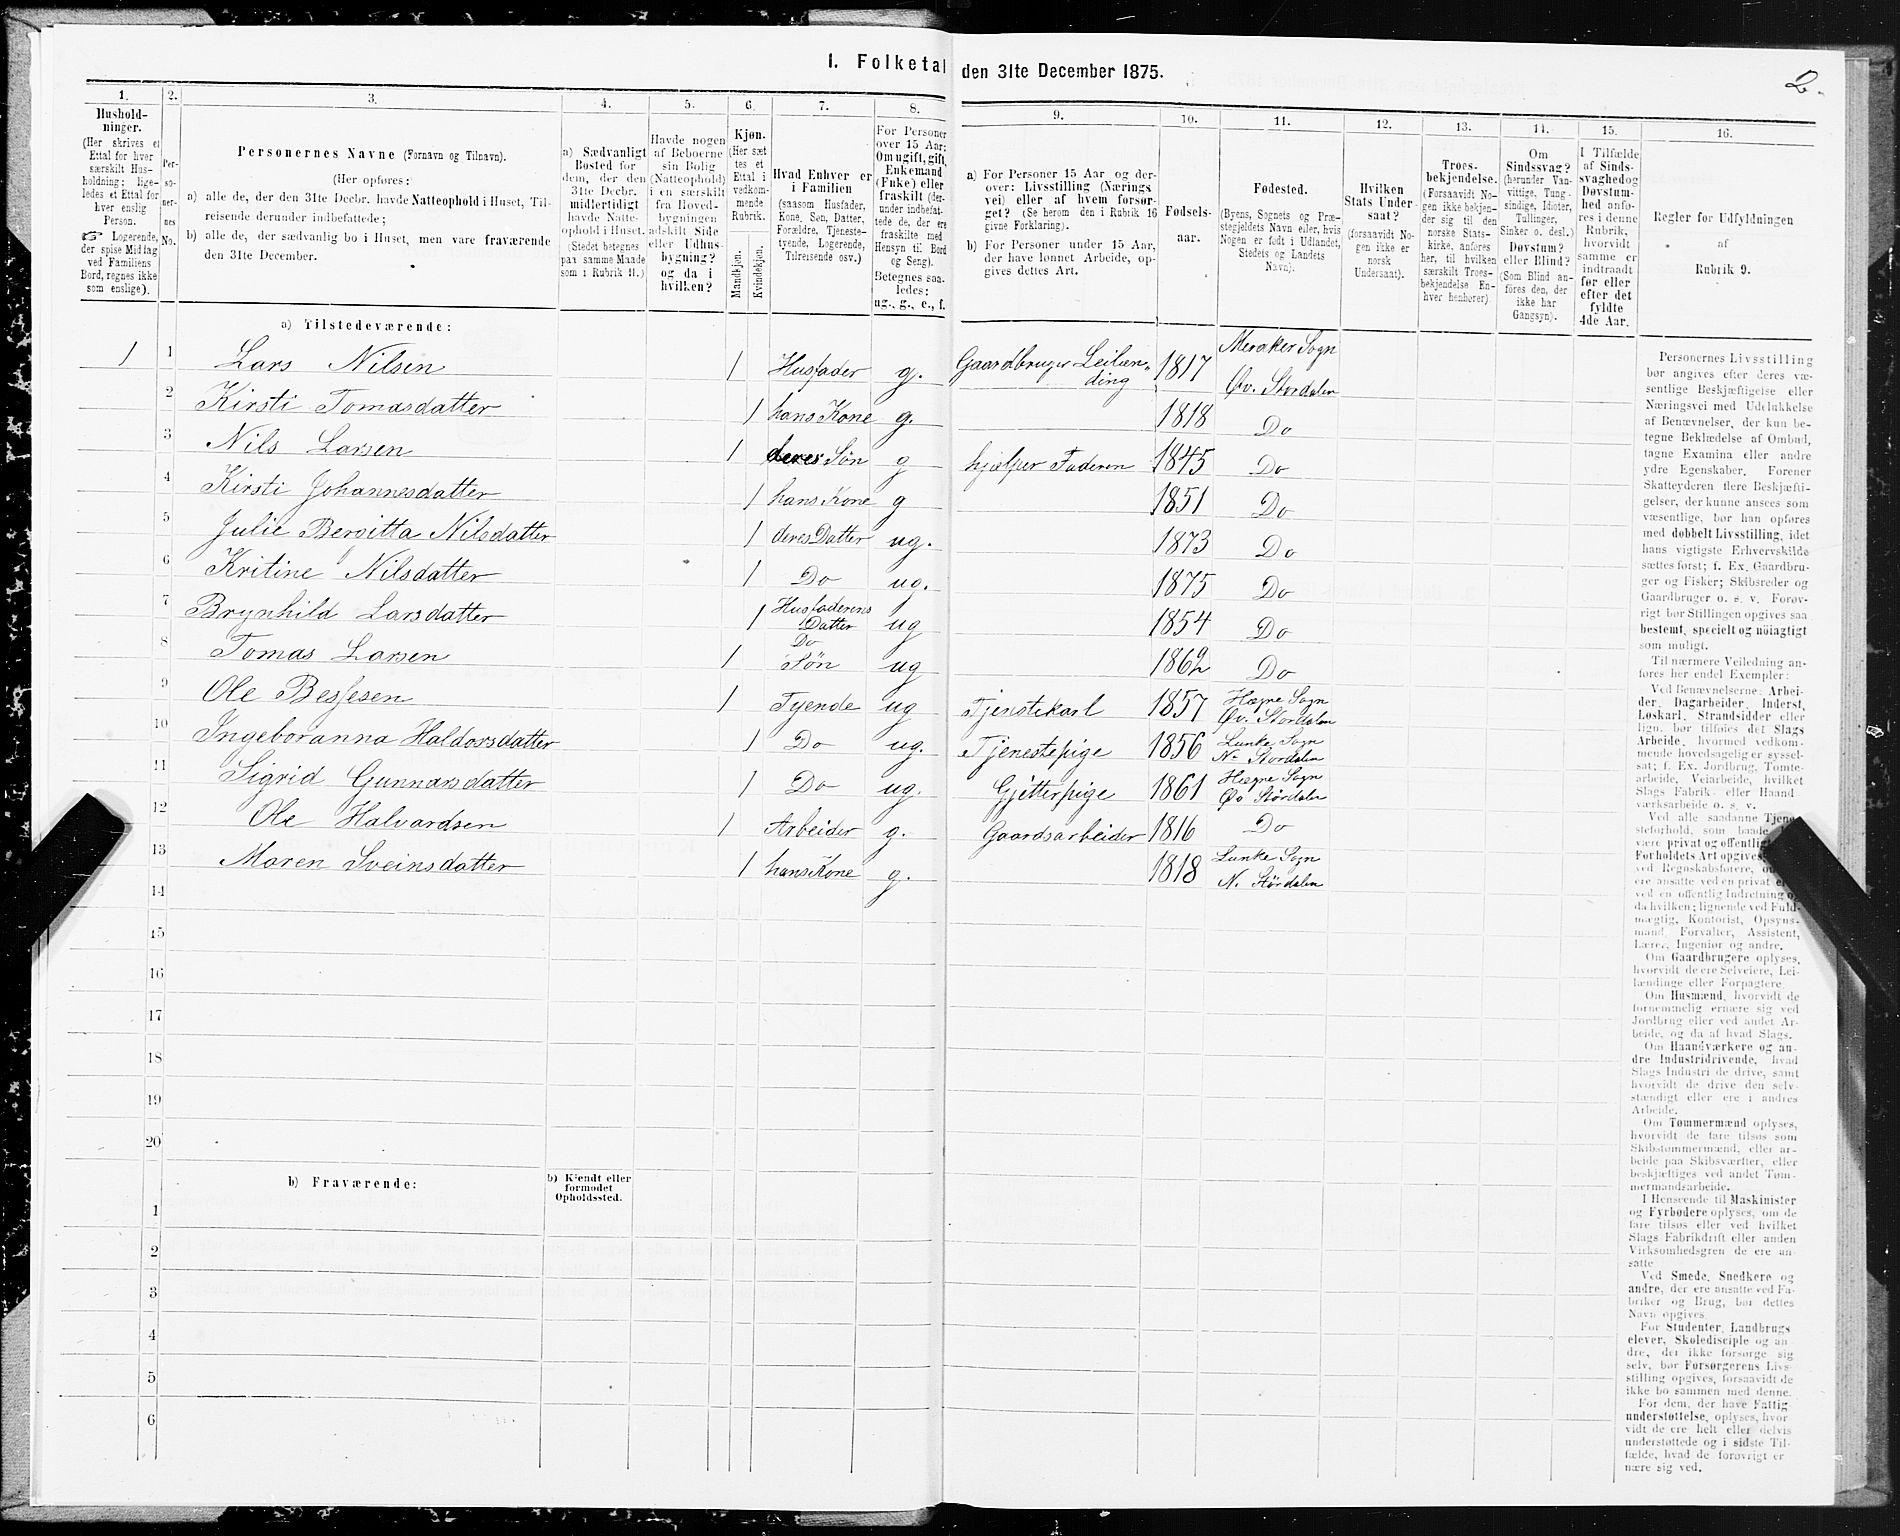 I. Folketal den 31te December 1875.
2.
1. 2. 3. 4. 5. 6. 7. 8. 9. 10. 11. 12. 13. 14. 15. 16.
Hushold-
ninger.
(Her skrives et
Ettal for hver
særskilt Hus-
holdning; lige-
ledes et Ettal for
hver enslig
Person.
☞ Logerende,
der spise Middag
ved Familiens
Bord, regnes ikke
som enslige).
Per-
so-
ner-
nes
No.
Personernes Navne (Fornavn og Tilnavn).
(Her opføres:
a) alle de, der den 31te Decbr. havde Natteophold i Huset, Til-
reisende derunder indbefattede;
b) alle de, der sædvanlig bo i Huset, men vare fraværende
den 31te December.
a) Sædvanligt
Bosted for
dem, der den
31te Decbr.
midlertidigt
havde Natte-
ophold i Huset.
(Stedet betegnes
paa samme Maade
som i Rubrik 11.)
Havde nogen
af Beboerne
sin Bolig
(Natteophold)
i en særskilt
fra Hoved-
bygningen
adskilt Side
eller Udhus-
bygning?
og da i
hvilken?
Kjøn.
(Her sæt-
tes et
Ettal i
vedkom-
mende
Rubrik.
Mandkjøn.
Kvindekjøn.
Hvad Enhver er
i Familien
(saasom Husfader,
Kone, Søn, Datter,
Forældre, Tjeneste-
tyende, Logerende,
Tilreisende osv.)
For Personer
over 15 Aar:
Om ugift, gift,
Enkemand
(Enke) eller
fraskilt (der-
under indbefat-
tede de, der ere
fraskilte med
Hensyn til Bord
og Seng).
Betegnes saa-
ledes:
ug., g., e., f.
a) For Personer 15 Aar og der-
over: Livsstilling (Nærings
vei) eller af hvem forsør-
get? (Se herom den i Rubrik 16
givne Forklaring).
b) For Personer under 15 Aar,
der have lønnet Arbeide, op-
gives dettes Art.
Fødsels-
aar.
Fødested.
(Byens, Sognets og Præ-
stegjeldets Navn eller, hvis
Nogen er født i Udlandet,
Stedets og Landets
Navn).
Hvilken
Stats Under-
saat?
(forsaavidt No-
gen ikke er
norsk
Undersaat).
Troes-
bekjendelse.
(Forsaavidt No-
gen ikke bekjen-
der sig til den
norske Stats-
kirke, anføres
her, til hvilken
særskilt Troes-
bekjendelse En-
hver henhører).
Om
Sindssvag?
(herunder Van-
vittige, Tung-
sindige, Idioter,
Tullinger,
Sinker o. desl.)
Døvstum?
eller Blind?
(Som Blind an-
føres den, der
ikke har
Gangsyn).
I Tilfælde
af Sinds-
svaghed og
Døvstum-
hed anfø-
res i denne
Rubrik,
hvorvidt
samme er
indtraadt
før eller
efter det
fyldte
4de Aar.
Regler for Udfyldningen
af
Rubrik 9.
a) Tilstedeværende:
1 1 Lars Nilsen 1 Husfader g. Gaardbruger Leilæn-
ding 1817 Meraker Sogn
Øv. Stordalen
2 Kirsti Tomasdatter 1 hans Kone g. 1818 Do
3 Nils Larsen 1 deres Søn g hjælper Faderen 1845 Do
4 Kirsti Johannesdatter 1 hans Kone g 1851 Do
5 Julie Bergitta Nilsdatter 1 deres Datter ug. 1873 Do
6 Kritine Nilsdatter 1 Do ug. 1875 Do
7 Brynhild Larsdatter 1 Husfaderens
Datter ug 1854 Do
8 Tomas Larsen 1 Do
Søn ug 1862 Do
9 Ole Besjesen 1 Tyende ug Tjenstekarl 1857 Hægre Sogn
Øv. Stordalen
10 Ingeboranna Haldorsdatter 1 Do ug. Tjenestepige 1856 Lunke Sogn
N. Stordalen
11 Sigrid Gunnarsdatter 1 Do ug. Gjetterpige 1861 Hægre Sogn
Øv Stördalen
12 Ole Halvardsen 1 Arbeider g. Gaardsarbeider 1816 Do
13 Maren Sveinsdatter 1 hans Kone g. 1818 Lunke Sogn
N. Stördalen
14
15
16
17
18
19
20
b) Fraværende:
b) Kjendt eller
formodet
Opholdssted.
1
2
3
4
5
6
Personernes Livsstilling
bør angives efter deres væ-
sentlige Beskjæftigelse eller
Næringsvei med Udelukkelse
af Benævnelser, der kun be-
tegne Beklædelse af Ombud,
tagne Examina eller andre
ydre Egenskaber. Forener
Skatteyderen flere Beskjæfti-
gelser, der kunne ansees som
væsentlige, bør han opføres
med dobbelt Livsstilling, idet
hans vigtigste Erhvervskilde
sættes først; f. Ex. Gaardbru-
ger og Fisker; Skibsreder og
Gaardbruger o. s. v. Forøv-
rigt bør Stillingen opgives saa
bestemt, specielt og nöiagtigt
som muligt.
Til nærmere Veiledning an-
føres her endel Exempler:
Ved Benævnelserne: Arbei-
der, Dagarbeider, Inderst,
Løskarl, Strandsidder eller
lign. bør tilføies det Slags
Arbeide, hvormed vedkom-
mende hovedsagelig er syssel-
sat; f. Ex. Jordbrug, Tomte-
arbeide, Veiarbeide, hvilket
Slags Fabrik- eller Haand
værksarbeide o. s. v.
Ved alle saadanne Tjene
steforhold, som baade
være privat og offentlig
Forholdets Art opgives,
ved Regnskabsførere,
ere ansatte ved en privat
ved en offentlig Indretning
da hvilken; lignende ved Fuld-
mægtig, Kontorist, Opsyns-
mand, Forvalter, Assistent,
Lærer, Ingeniør og andre.
Om Gaardbrugere oplyses,
hvorvidt de ere Selveiere, Lei-
lændinge eller Forpagtere.
Om Husmænd, hvorvidt de
fornemmelig ernære sig ved
Jordbrug eller ved andet Ar-
beide, og da af hvad Slags.
Om Haandværkere og an-
dre Industridrivende, hvad
Slags Industri de drive, samt
hvorvidt de drive den selv-
stændigt eller ere i andres
Arbeide.
Om Tømmermænd oplyses,
hvorvidt de fare tilsøs som
Skibstømmermænd, eller ar-
beide paa Skibsværfter, eller
beskjæftiges ved andet Tøm-
mermandsarbeide.
I Henseende til Maskinister
og Fyrbødere oplyses, om de
fare tilsøs eller ved hvilket
Slags Fabrikdrift eller anden
Virksomhedsgren de ere an-
satte
Ved Smede, Snedkere og
andre, der ere ansatte ved Fa-
briker og Brug, bør dettes
Navn opgives.
For Studenter, Landbrugs
elever, Skoledisciple og an-
dre, der ikke forsørge sig
selv, bør Forsørgerens Livs-
stilling opgives, forsaavidt de
ikke bo sammen med denne.
For dem, der have Fattig-
understøttelse, oplyses, hvor
vidt de ere helt eller delvis
understøttede og i sidste Til-
fælde, hvad de forøvrigt er
nære sig ved.